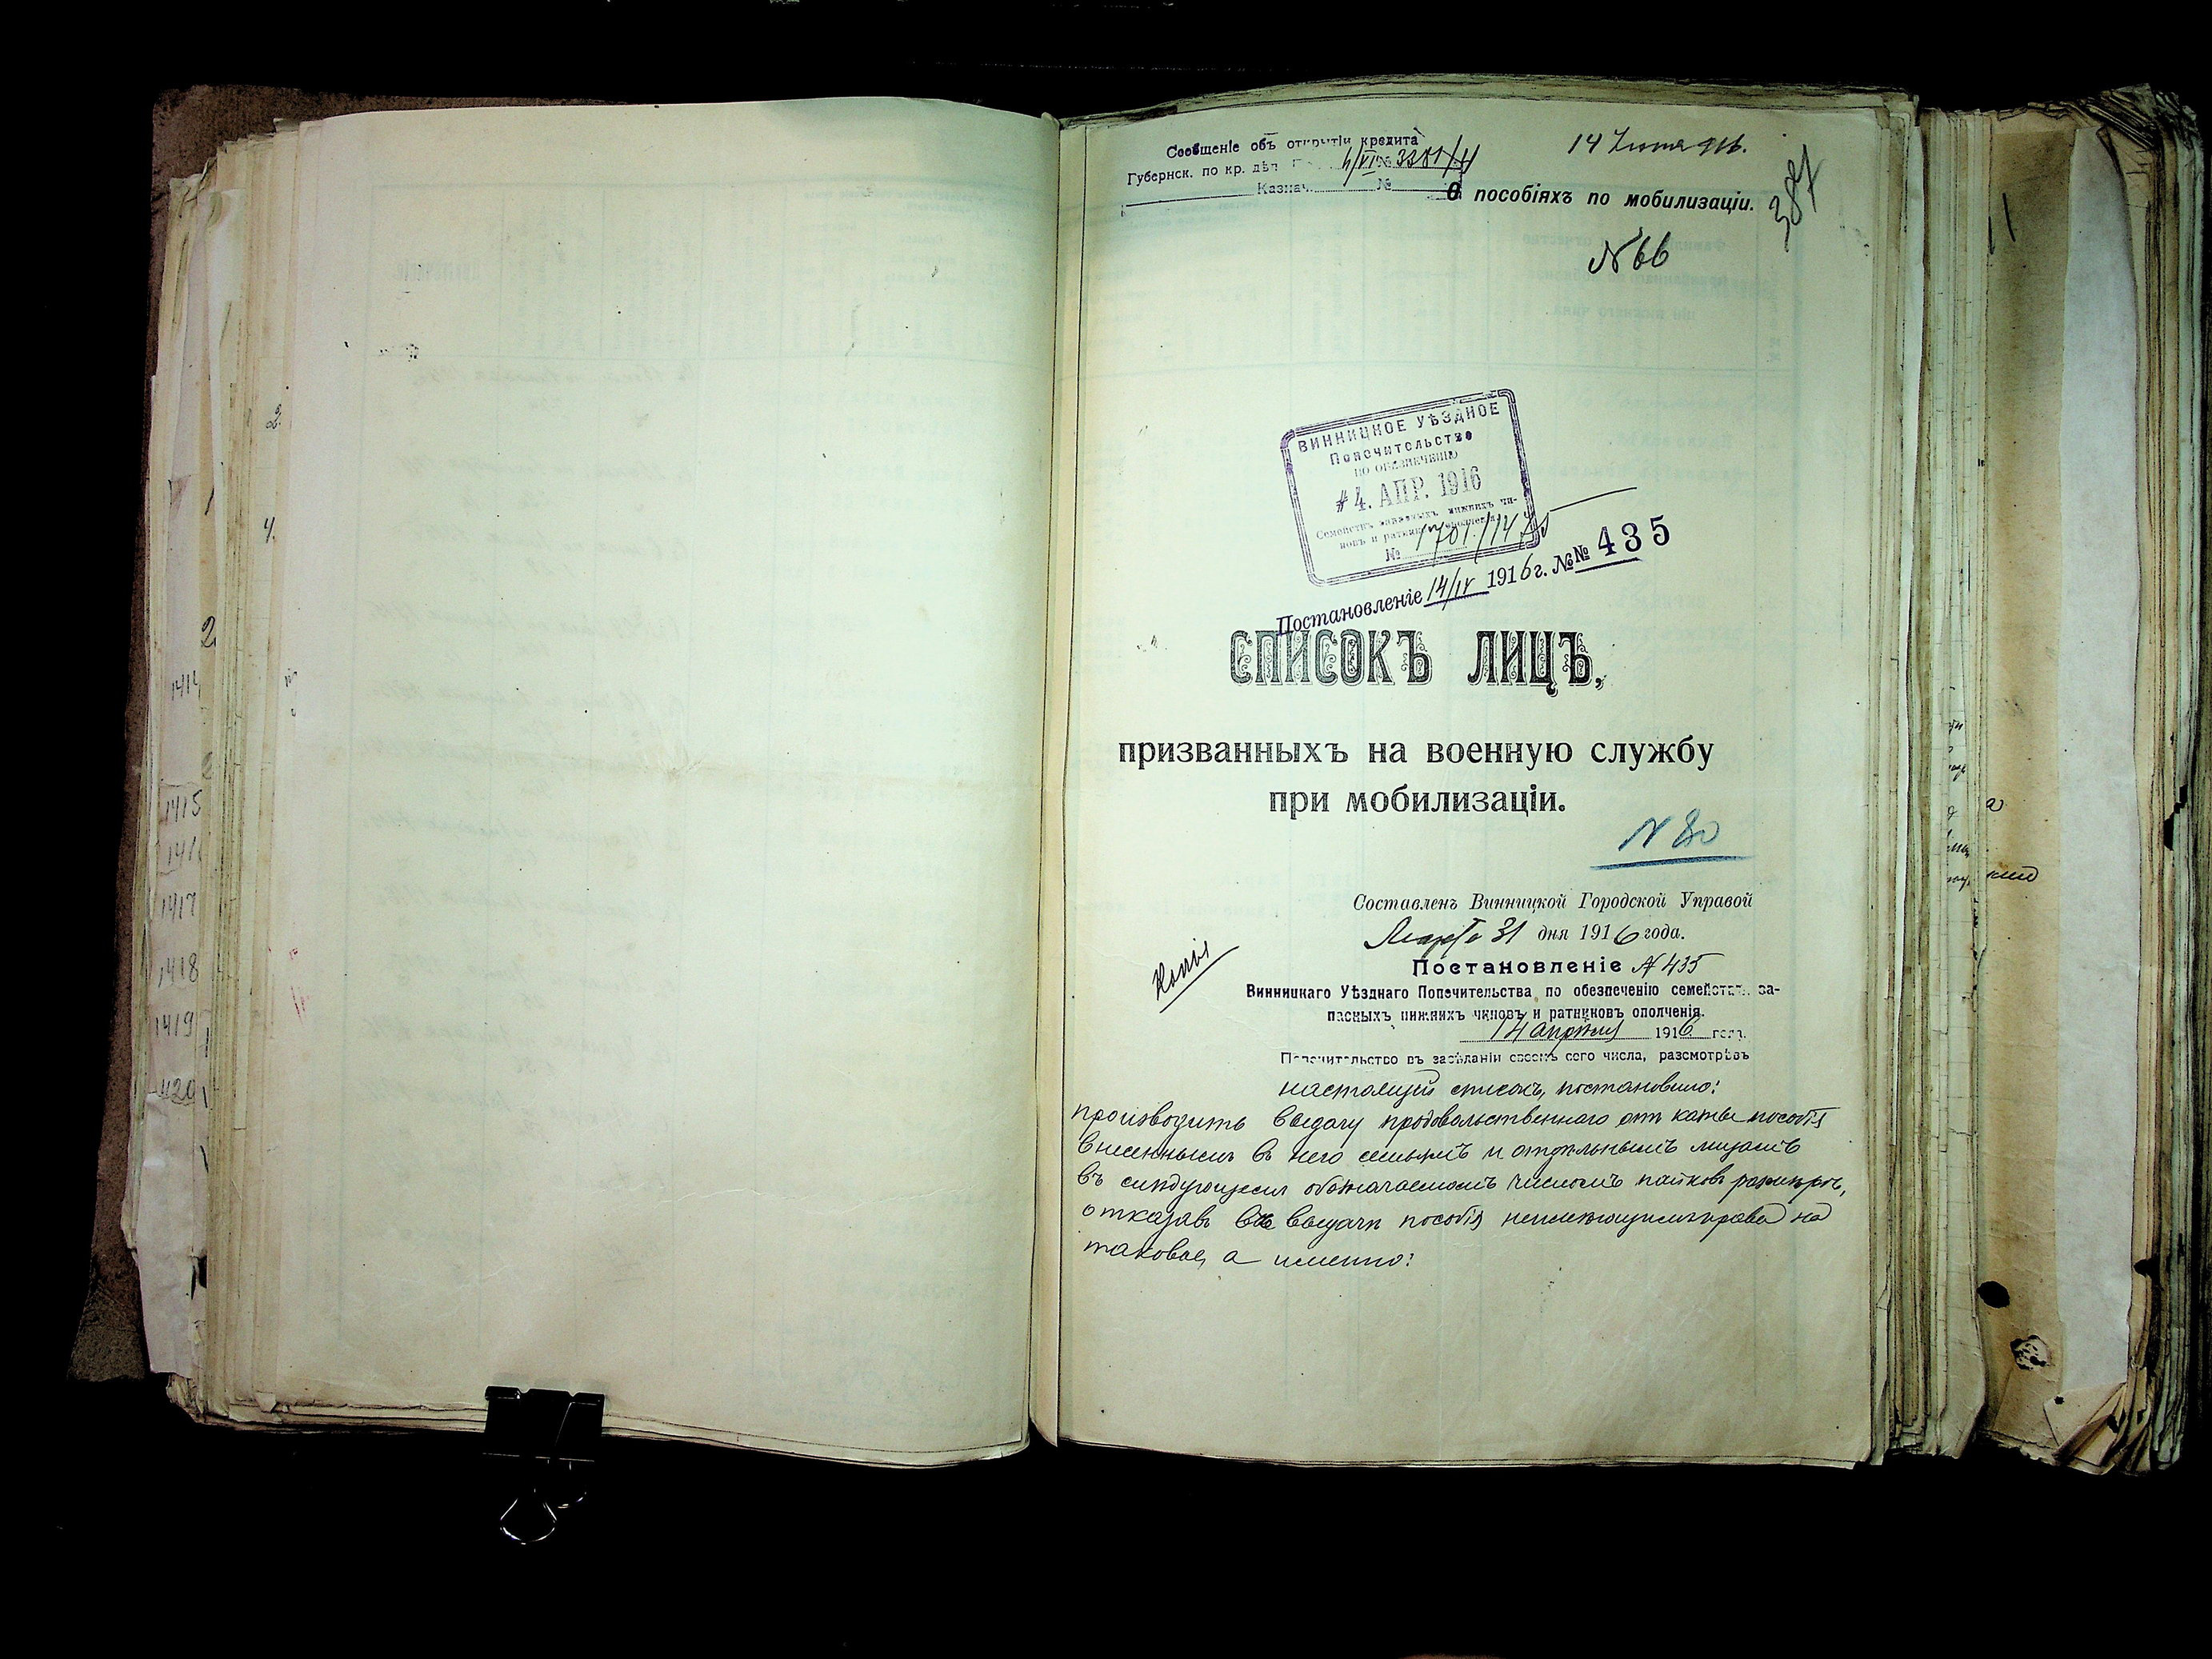 Сообщеніе объ открытіи кредита
14 Іюня 916.
Губернск. по кр. дѣл. 4/VI № 3381/4
Казнач. №
387
О пособіяхъ по мобилизаціи.
N 66
ВИННИЦКОЕ УѢЗДНОЕ
Попечительство
по обезпеченію
# 4. АПР. 1916
Семействъ запасныхъ нижнихъ чи-
новъ и ратниковъ ополченія
№ 1701/1475
Постановленіе 14/IV 1916 г. №№ 435
СПИСОКЪ ЛИЦЪ,
призванныхъ на военную службу
при мобилизаціи.
N 80
Составленъ Винницкой Городской Управой
Марта 31 дня 1916 года.
Копія
Постановленіе N 435
Винницкаго Уѣзднаго Попечительства по обезпеченію семействъ за-
пасныхъ нижнихъ чиновъ и ратниковъ ополченія.
14 апрѣля 1916 года
Попечительство въ засѣданіи своемъ сего числа, разсмотрѣвъ
настоящій списокъ, постановило:
производить выдачу продовольственнаго отъ казны пособія
внесеннымъ въ него семьямъ и отдѣльнымъ лицамъ
въ слѣдующемъ обозначаемомъ числомъ пайковъ размѣрѣ,
отказавъ въ выдачѣ пособія неимѣющимъ права на
таковое, а именно:
2.
4.
2
1414
1415
1416
1417
1418
1419
1420